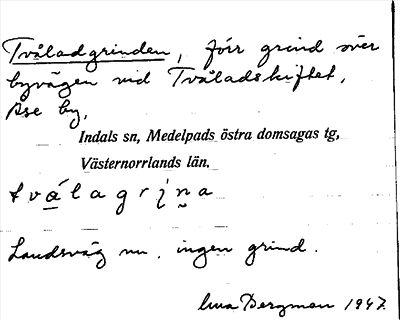 Tvåladgrinden, förr grind över
byvägen vid Tvåladskiftet,
Åse by,
Indals sn, Medelpads östra domsagas tg,
Västernorrlands län.
tvålagrina
Landsväg nu, ingen grind.
Bergman 1947.